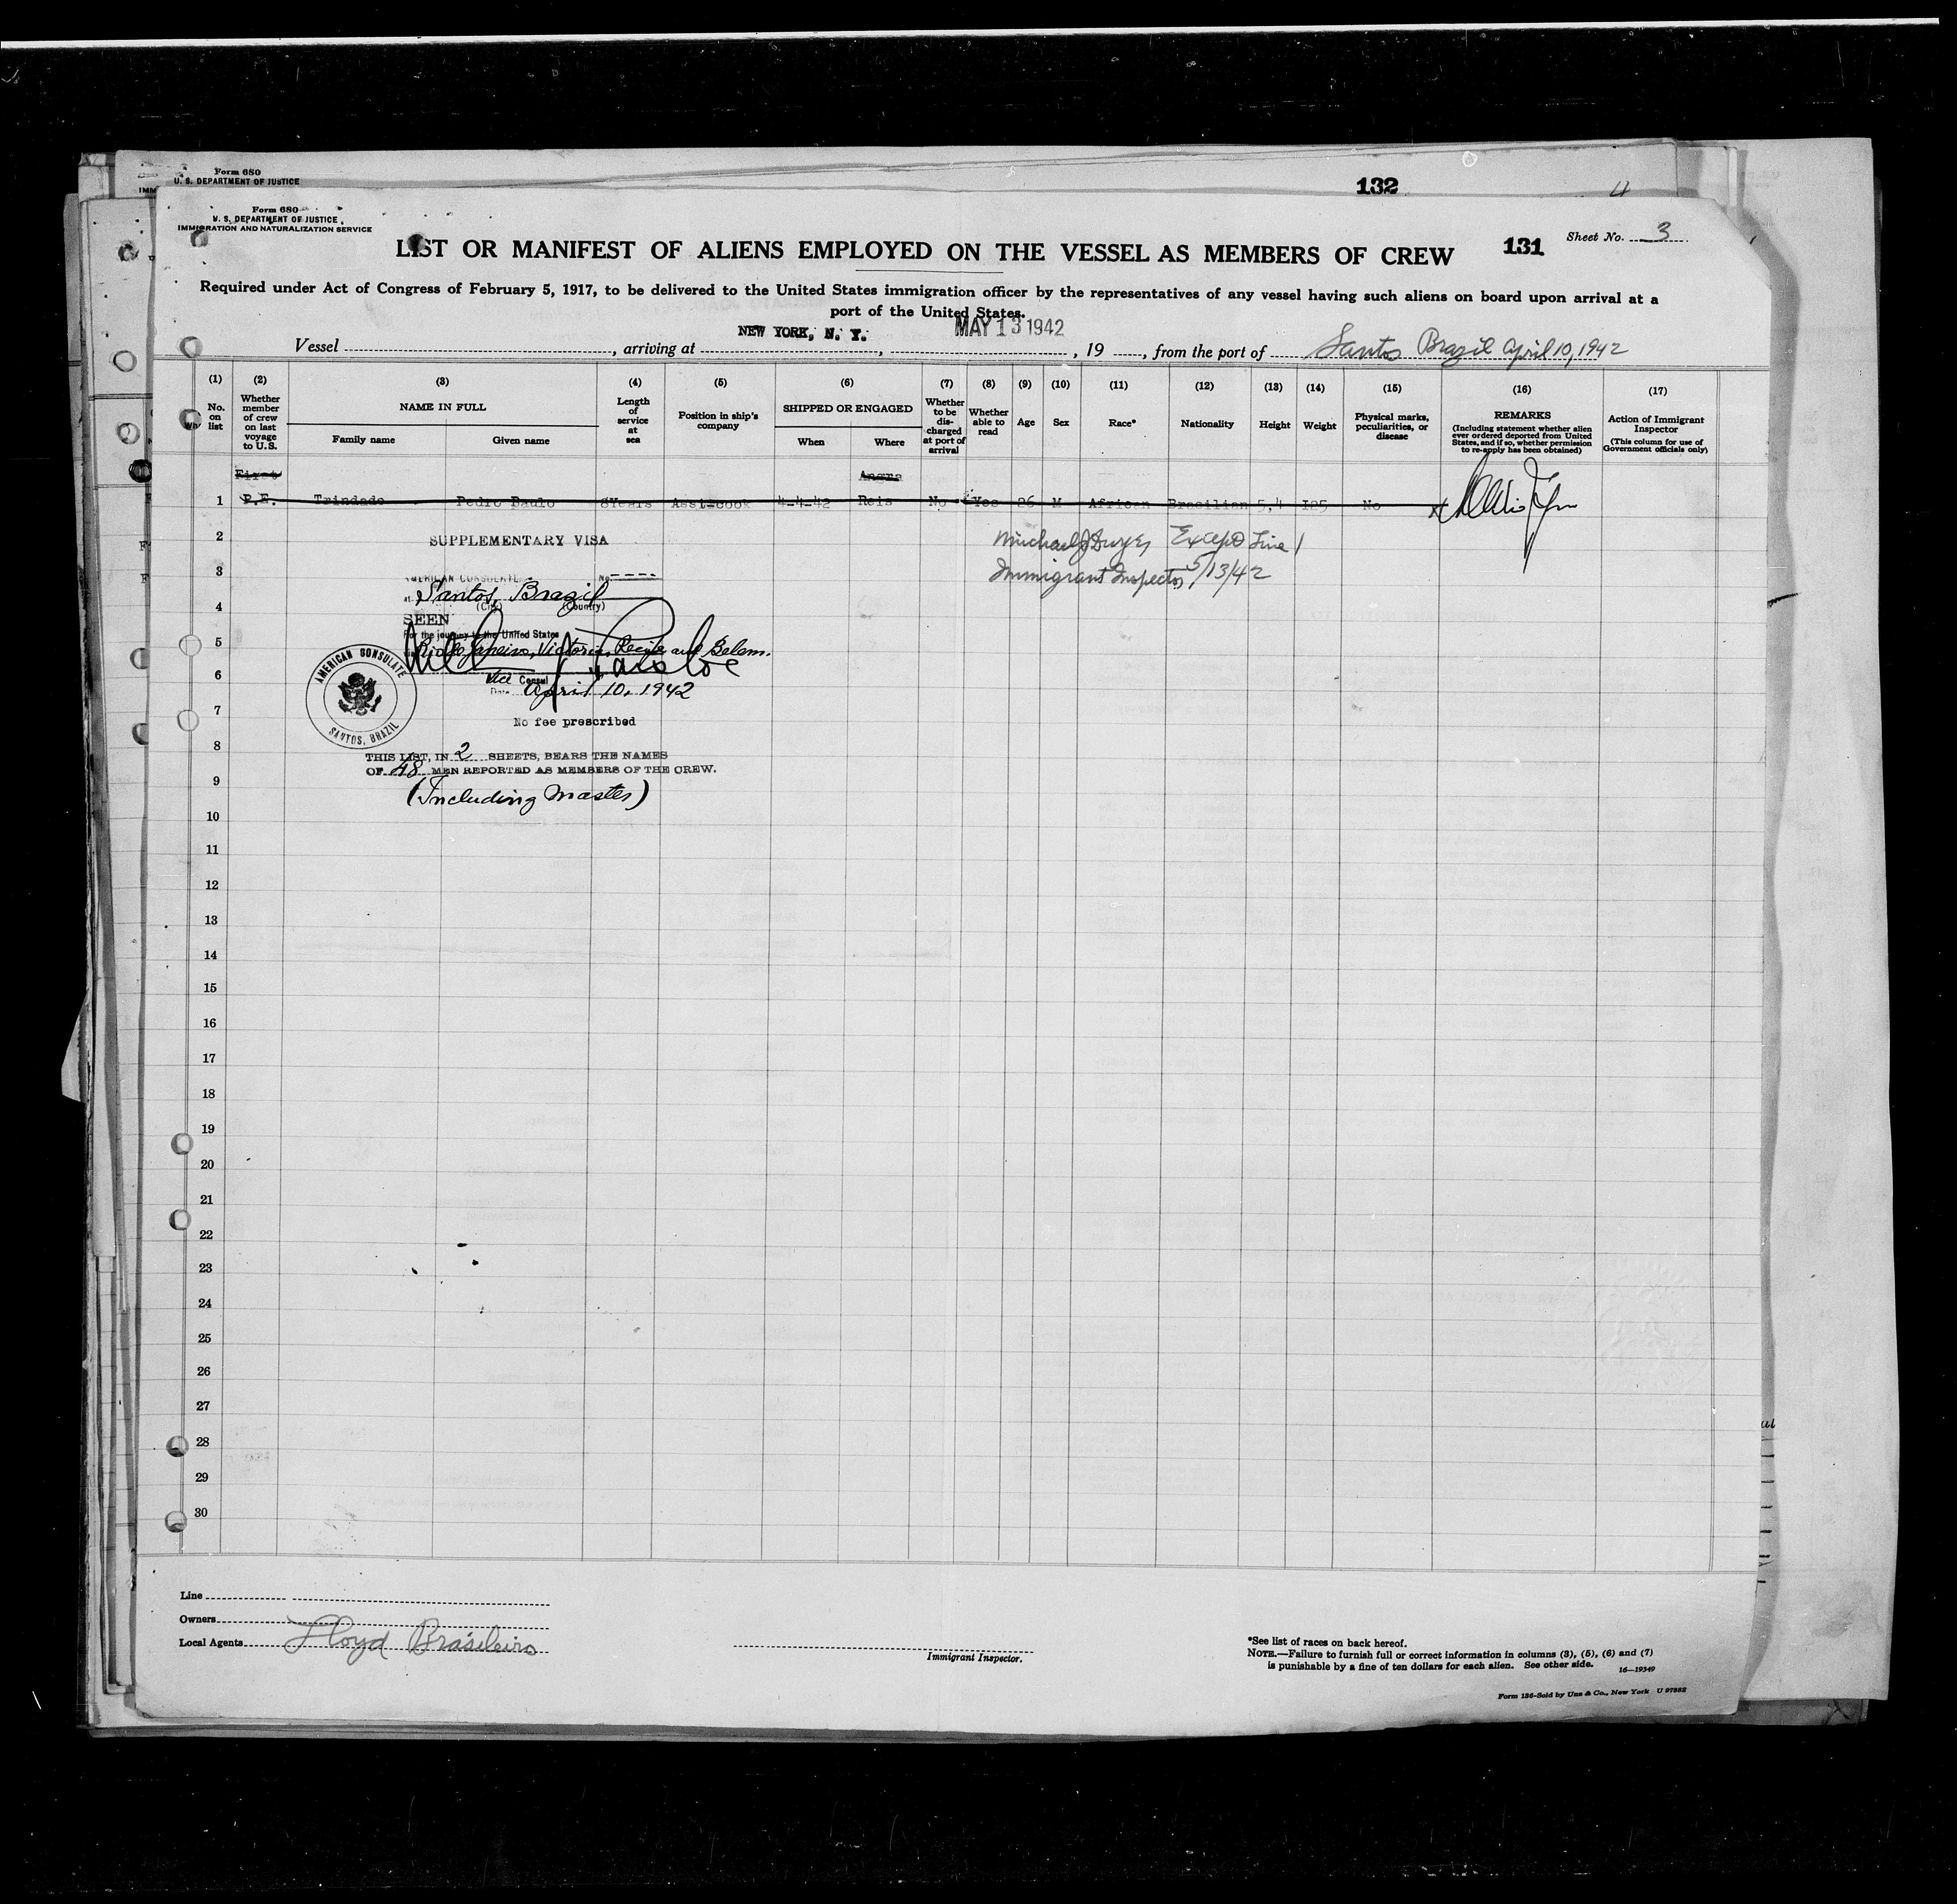 Form 680
U. S. DEPARTMENT OF JUSTICE
132
Form 680
U. S. DEPARTMENT OF JUSTICE
IMMIGRATION AND NATURALIZATION SERVICE
LIST OR MANIFEST OF ALIENS EMPLOYED ON THE VESSEL AS MEMBERS OF CREW
131
Sheet No. 3
Required under Act of Congress of February 5, 1917, to be delivered to the United States immigration officer by the representatives of any vessel having such aliens on board upon arrival at a
port of the United States.
Vessel , arriving at NEW YORK, N. Y. , MAY 13 1942 , 19 , from the port of Santos Brazil April 10, 1942
(1) (2) (3) (4) (5) (6) (7) (8) (9) (10) (11) (12) (13) (14) (15) (16) (17)
No. on list
Whether member of crew on last voyage to U.S.
NAME IN FULL
Family name
Given name
Length of service at sea
Position in ship's company
SHIPPED OR ENGAGED
When
Where
Whether to be discharged at port of arrival
Whether able to read
Age
Sex
Race*
Nationality
Height
Weight
Physical marks, peculiarities, or disease
REMARKS
(Including statement whether alien ever ordered deported from United States, and if so, whether permission to re-apply has been obtained)
Action of Immigrant Inspector
(This column for use of Government officials only)
First Angra
1 P.E. Trindade Pedro Paulo 8Years Asst-cook 4-4-42 Reis No Yes 26 M African Brasilian 5,4 125 No x
2 SUPPLEMENTARY VISA Michael J Dwyer Except Line 1
3 AMERICAN CONSULATE No. ---- Immigrant Inspector, 5/13/42
at Santos, Brazil
4 (City) (Country)
SEEN
For the journey to the United States
5 Rio de Janeiro, Victoria, Recife and Belem.
6 Vice Consul
Date April 10, 1942
AMERICAN CONSULATE
SANTOS, BRAZIL
7 No fee prescribed
8 THIS LIST, IN 2 SHEETS, BEARS THE NAMES
OF 48 MEN REPORTED AS MEMBERS OF THE CREW.
9 (Including Master)
10
11
12
13
14
15
16
17
18
19
20
21
22
23
24
25
26
27
28
29
30
Line
Owners
Local Agents Lloyd Brasileiro
Immigrant Inspector.
*See list of races on back hereof.
NOTE.—Failure to furnish full or correct information in columns (3), (5), (6) and (7)
is punishable by a fine of ten dollars for each alien. See other side. 16—19349
Form 136-Sold by Unz & Co., New York U 97882